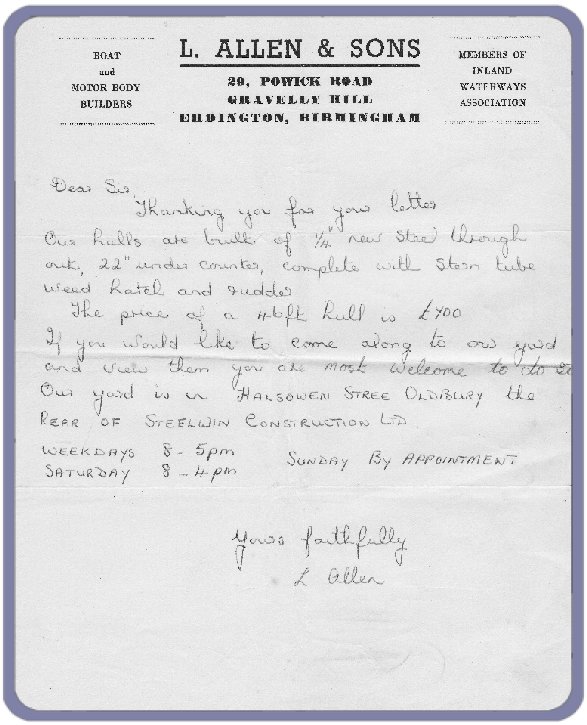 BOAT
and
MOTOR BODY
BUILDERS
L. ALLEN & SONS
29, POWICK ROAD
GRAVELLY HILL
ERDINGTON, BIRMINGHAM
MEMBERS OF
INLAND
WATERWAYS
ASSOCIATION
Dear Sir,
Thanking you for your letter
Our hulls are built of 1/4" new steel through
out, 22" under counter, complete with stern tube
weed hatch and rudder
The price of a 46ft hull is £700
If you would like to come along to our yard
and view them you are most welcome to do so
Our yard is in HALSOWEN STREE OLDBURY the
REAR OF STEELWIN CONSTRUCTION LTD.
WEEKDAYS 8 - 5pm
SATURDAY 8 - 4pm
SUNDAY BY APPOINTMENT
Yours faithfully
L Allen